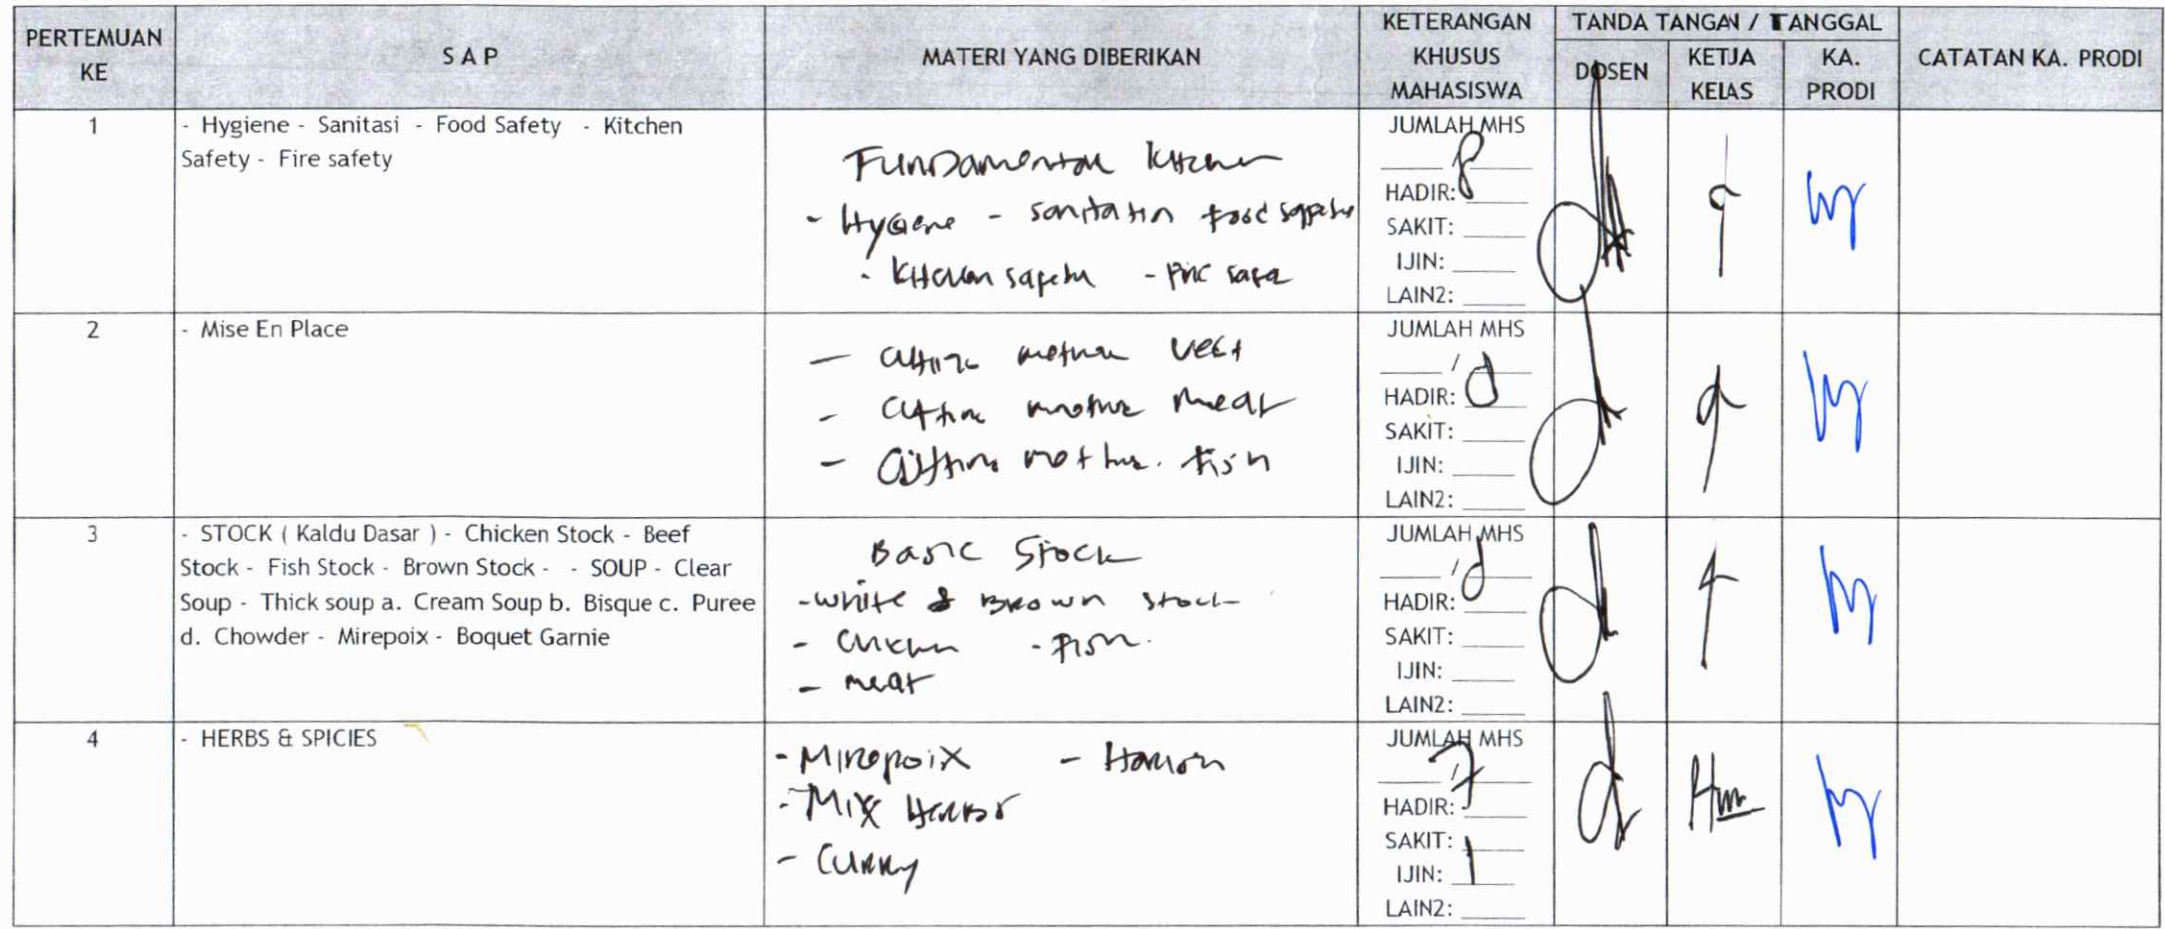 PERTEMUAN KE
S A P
MATERI YANG DIBERIKAN
KETERANGAN KHUSUS MAHASISWA
TANDA TANGAN / TANGGAL
DOSEN
KETUA KELAS
KA. PRODI
CATATAN KA. PRODI
1
- Hygiene - Sanitasi - Food Safety - Kitchen
Safety - Fire safety
Fundamental Kitchen
- Hygiene - Sanitation food
- Kitchen safety - Fire
JUMLAH MHS
8
HADIR:
SAKIT:
IJIN:
LAIN2:
2
- Mise En Place
- Cutting
- Cutting meat
- Cutting fish
JUMLAH MHS
/
HADIR:
SAKIT:
IJIN:
LAIN2:
3
- STOCK ( Kaldu Dasar ) - Chicken Stock - Beef
Stock - Fish Stock - Brown Stock - - SOUP - Clear
Soup - Thick soup a. Cream Soup b. Bisque c. Puree
d. Chowder - Mirepoix - Boquet Garnie
Basic Stock
- White & Brown stock
- Chicken - Fish.
- meat
JUMLAH MHS
/
HADIR:
SAKIT:
IJIN:
LAIN2:
4
- HERBS & SPICIES
- Mirepoix
- Mix
- Curry
JUMLAH MHS
/ 7
HADIR:
SAKIT:
IJIN: 1
LAIN2: